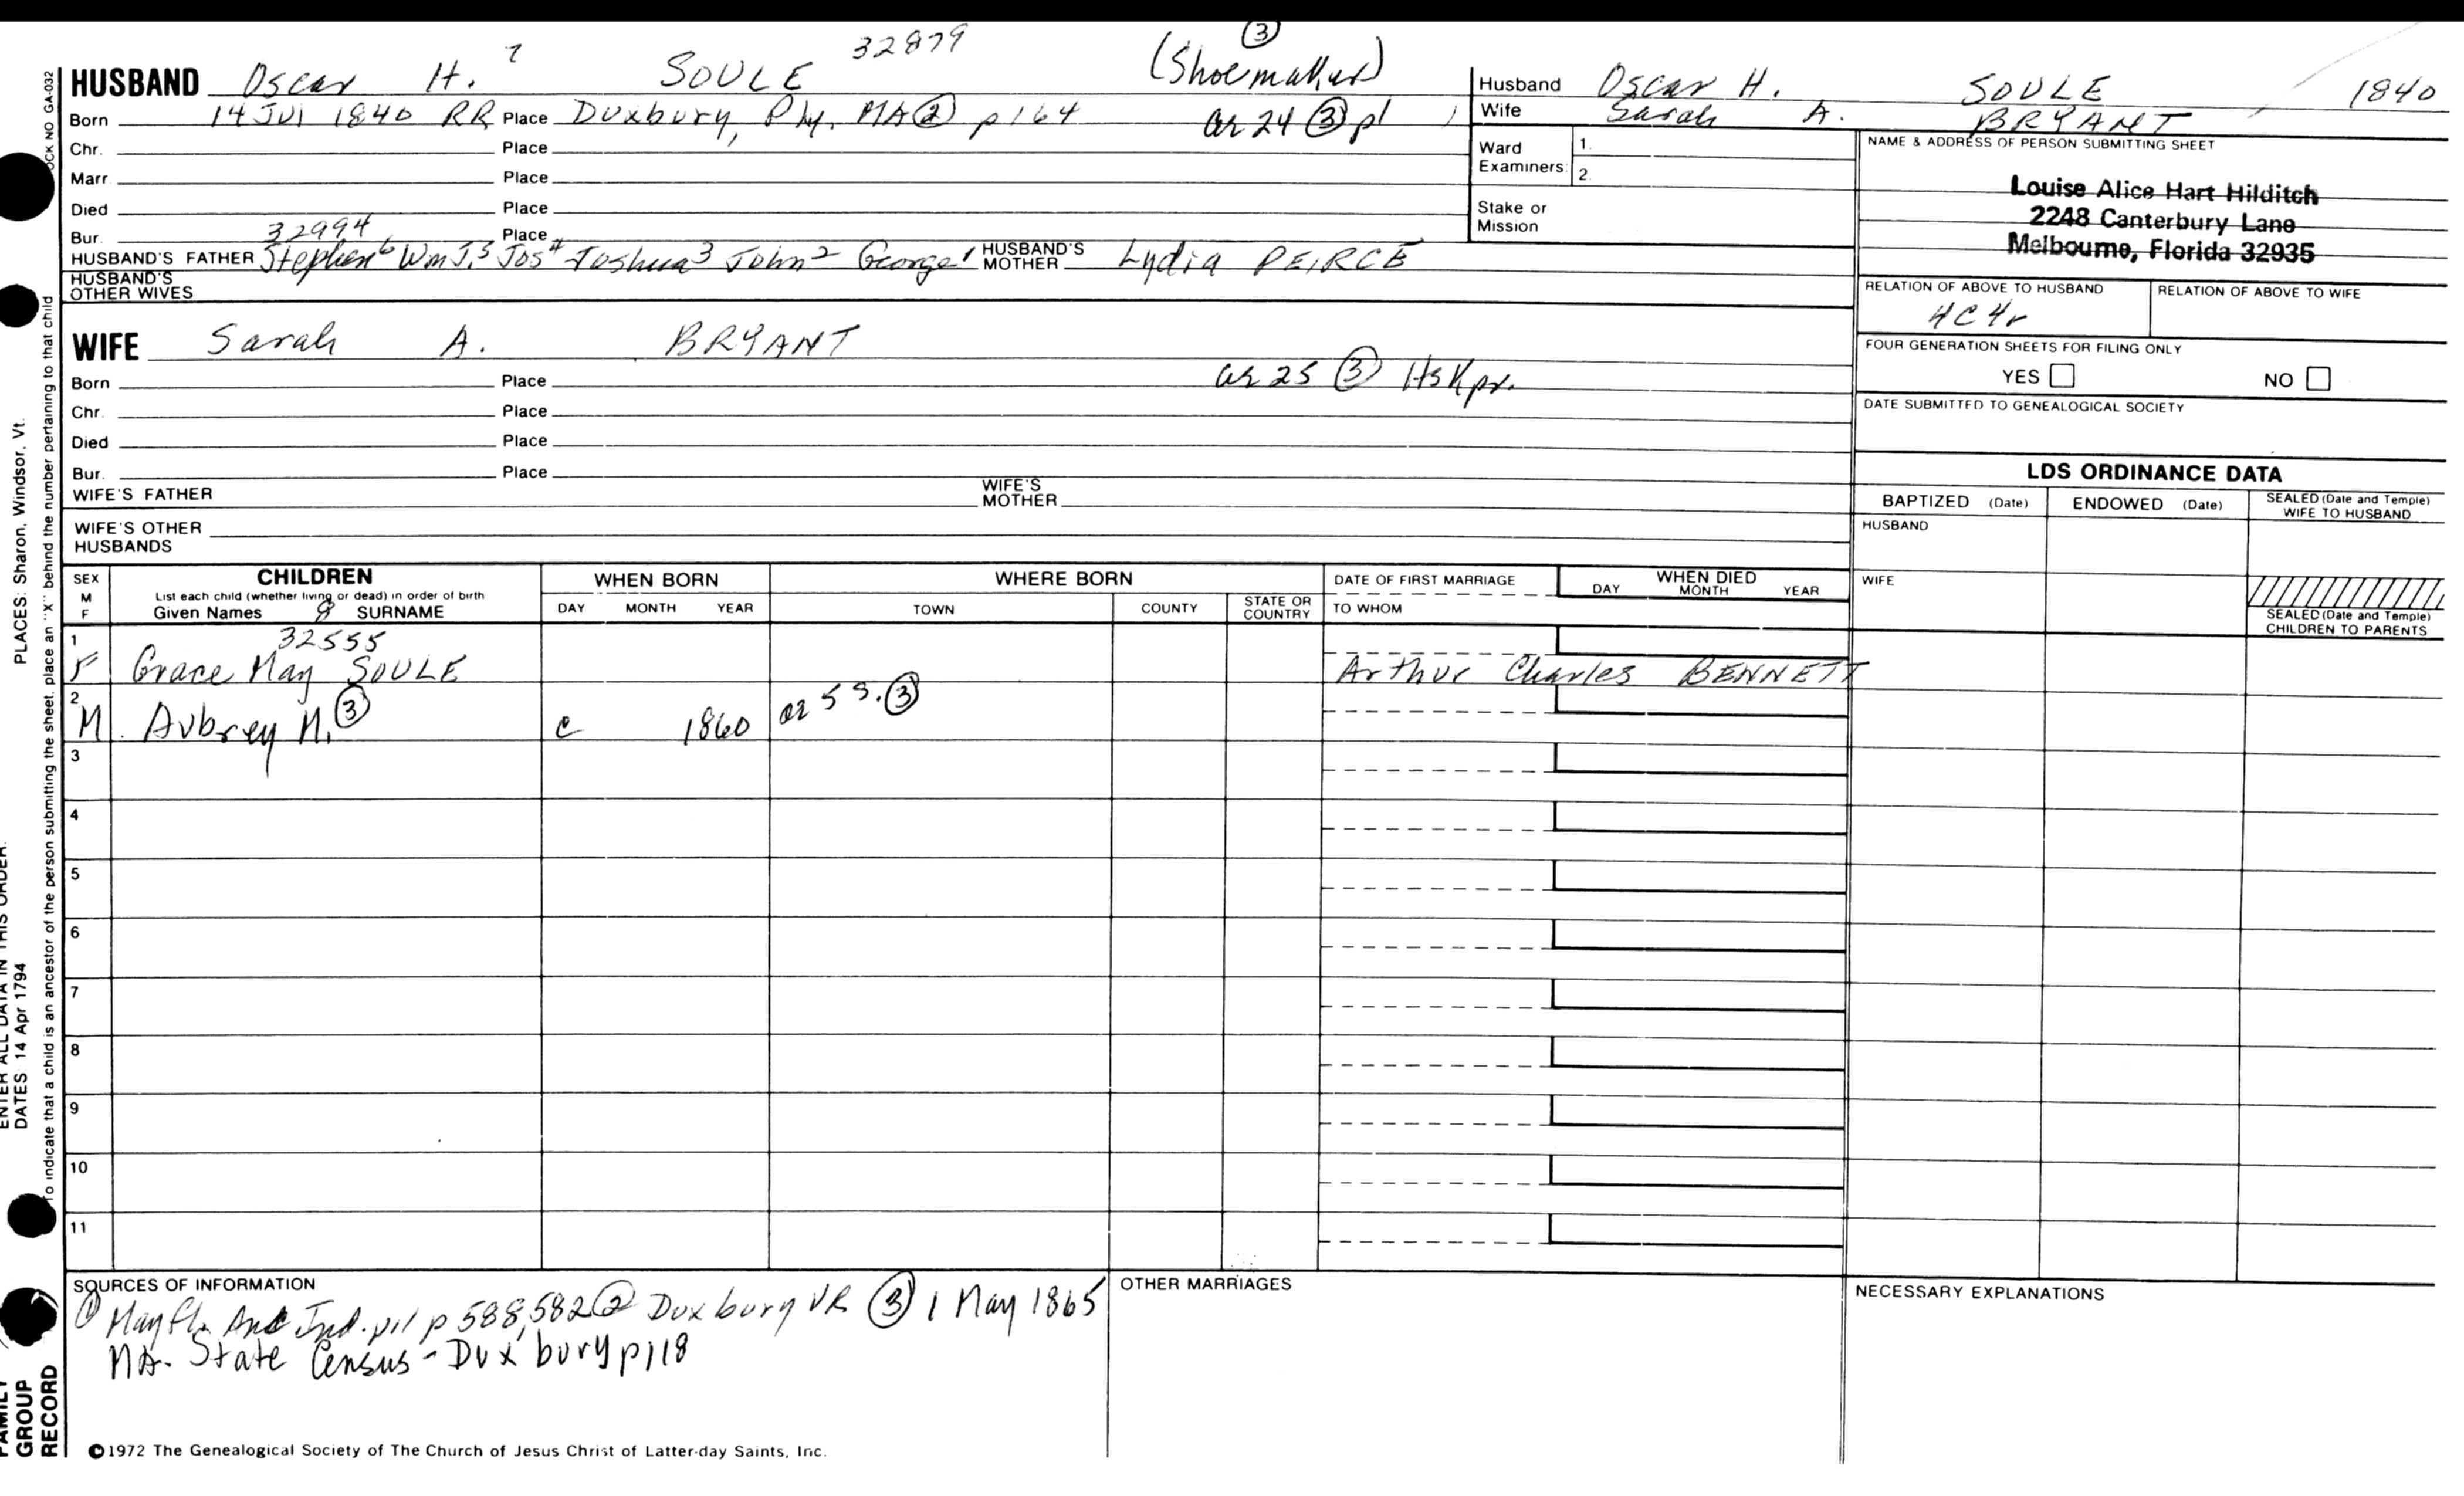 32879 (3)
HUSBAND Oscar H. 7 SOULE (Shoemaker)
Born 14 Jul 1840 RR Place Duxbury, Ply, MA (2) p164 ae 24 (3) pl
Chr. Place
Marr Place
Died Place
Bur. Place
32994
HUSBAND'S FATHER Stephen 6 Wm J. 5 Jos 4 Joshua 3 John 2 George 1 HUSBAND'S MOTHER Lydia PEIRCE
HUSBAND'S OTHER WIVES
WIFE Sarah A. BRYANT
ae 25 (3) HsKpr.
Born Place
Chr. Place
Died Place
Bur. Place
WIFE'S FATHER WIFE'S MOTHER
WIFE'S OTHER HUSBANDS
Husband Oscar H. SOULE 1840
Wife Sarah A. BRYANT
Ward Examiners: 1. 2.
Stake or Mission
NAME & ADDRESS OF PERSON SUBMITTING SHEET
Louise Alice Hart Hilditch
2248 Canterbury Lane
Melbourne, Florida 32935
RELATION OF ABOVE TO HUSBAND RELATION OF ABOVE TO WIFE
4C4r
FOUR GENERATION SHEETS FOR FILING ONLY
YES NO
DATE SUBMITTED TO GENEALOGICAL SOCIETY
LDS ORDINANCE DATA
BAPTIZED (Date) ENDOWED (Date) SEALED (Date and Temple) WIFE TO HUSBAND
HUSBAND
WIFE
SEALED (Date and Temple) CHILDREN TO PARENTS
SEX M F
CHILDREN
List each child (whether living or dead) in order of birth
Given Names 8 SURNAME
WHEN BORN DAY MONTH YEAR
WHERE BORN TOWN COUNTY STATE OR COUNTRY
DATE OF FIRST MARRIAGE TO WHOM
WHEN DIED DAY MONTH YEAR
32555
1 F Grace May SOULE Arthur Charles BENNETT
2 M Aubrey H. (3) c 1860 ae 5 s. (3)
3
4
5
6
7
8
9
10
11
SOURCES OF INFORMATION
(1) Mayfl. And Ind. p588, 582 (2) Duxbury VR (3) 1 May 1865
MA. State Census - Duxbury p118
OTHER MARRIAGES
NECESSARY EXPLANATIONS
©1972 The Genealogical Society of The Church of Jesus Christ of Latter-day Saints, Inc.
OCK NO GA-032
PLACES: Sharon, Windsor, Vt.
To indicate that a child is an ancestor of the person submitting the sheet, place an "X" behind the number pertaining to that child
ENTER ALL DATA IN THIS ORDER:
DATES 14 Apr 1794
FAMILY GROUP RECORD